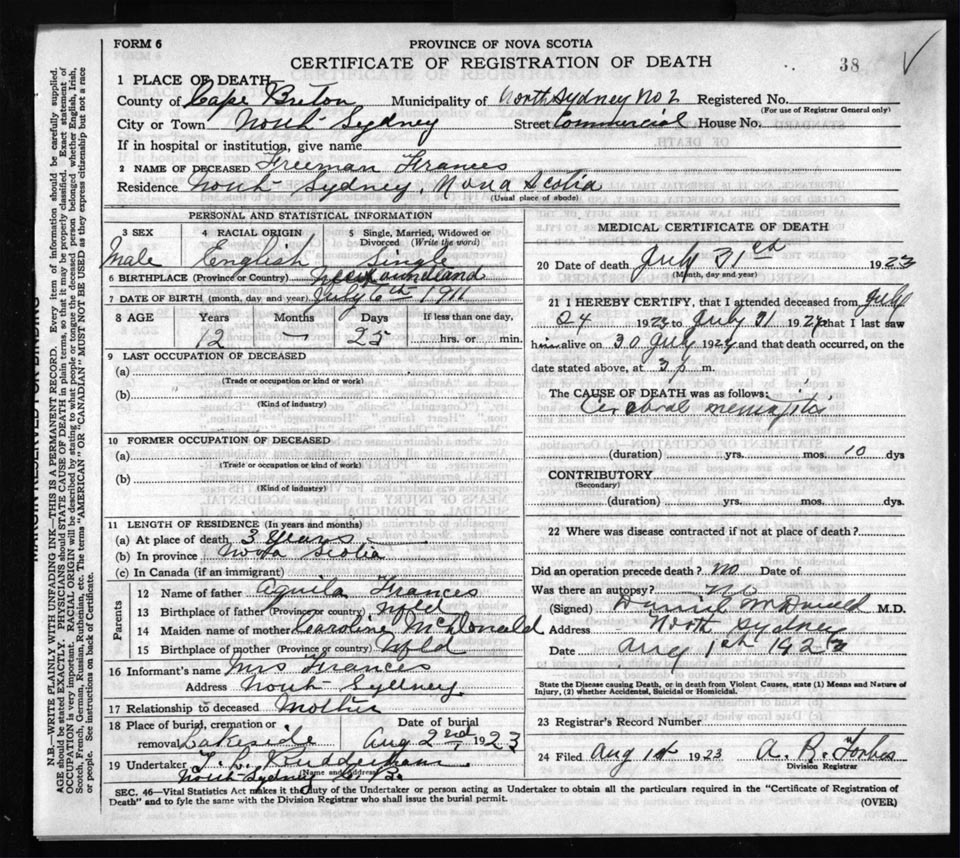 FORM 6
PROVINCE OF NOVA SCOTIA
CERTIFICATE OF REGISTRATION OF DEATH
38
1 PLACE OF DEATH
County of Cape Breton Municipality of North Sydney No 2 Registered No.
(For use of Registrar General only)
City or Town North Sydney Street Commercial House No.
If in hospital or institution, give name
2 NAME OF DECEASED Freeman Frances
Residence North Sydney, Nova Scotia
(Usual place of abode)
PERSONAL AND STATISTICAL INFORMATION
3 SEX 4 RACIAL ORIGIN 5 Single, Married, Widowed or Divorced (Write the word)
Male English Single
6 BIRTHPLACE (Province or Country) Newfoundland
7 DATE OF BIRTH (month, day and year) July 6th 1911
8 AGE Years Months Days If less than one day,
12 — 25 hrs. or min.
9 LAST OCCUPATION OF DECEASED
(a)
(Trade or occupation or kind or work)
(b)
(Kind of industry)
10 FORMER OCCUPATION OF DECEASED
(a)
(Trade or occupation or kind of work)
(b)
(Kind of industry)
11 LENGTH OF RESIDENCE (In years and months)
(a) At place of death 3 years
(b) In province Nova Scotia
(c) In Canada (if an immigrant)
Parents
12 Name of father Aquila Frances
13 Birthplace of father (Province or country) Nfld
14 Maiden name of mother Caroline McDonald
15 Birthplace of mother (Province or country) Nfld
16 Informant's name Mrs Frances
Address North Sydney
17 Relationship to deceased Mother
18 Place of burial, cremation or removal Lakeside Date of burial Aug 2nd 1923
19 Undertaker
North Sydney C. B.
(Name and address)
MEDICAL CERTIFICATE OF DEATH
20 Date of death July 31st 1923
(Month, day and year)
21 I HEREBY CERTIFY, that I attended deceased from July
24 192 to July 31 192 that I last saw
him alive on 30 July 192 and that death occurred, on the
date stated above, at m.
The CAUSE OF DEATH was as follows:
Cerebral meningitis
(duration) yrs. mos. 10 dys
CONTRIBUTORY
(Secondary)
(duration) yrs. mos. dys.
22 Where was disease contracted if not at place of death?
Did an operation precede death? no Date of
Was there an autopsy? no
(Signed) M.D.
Address North Sydney
Date Aug 1st 1923
State the Disease causing Death, or in death from Violent Causes, state (1) Means and Nature of Injury, (2) whether Accidental, Suicidal or Homicidal.
23 Registrar's Record Number
24 Filed Aug 1st 1923 A. R. Forbes
Division Registrar
SEC. 46—Vital Statistics Act makes it the duty of the Undertaker or person acting as Undertaker to obtain all the particulars required in the "Certificate of Registration of
Death" and to fyle the same with the Division Registrar who shall issue the burial permit.
(OVER)
MARGIN RESERVED FOR BINDING
N.B.—WRITE PLAINLY WITH UNFADING INK—THIS IS A PERMANENT RECORD. Every item of information should be carefully supplied.
AGE should be stated EXACTLY. PHYSICIANS should STATE CAUSE OF DEATH in plain terms, so that it may be properly classified. Exact statement of
OCCUPATION is very important. RACIAL ORIGIN will be described by stating to what people or tongue the deceased person belonged whether English, Irish,
Scotch, French, German, Russian, Ruthenian, etc. The terms "AMERICAN" OR "CANADIAN" MUST NOT BE USED as they express citizenship but not a race
or people. See instructions on back of Certificate.